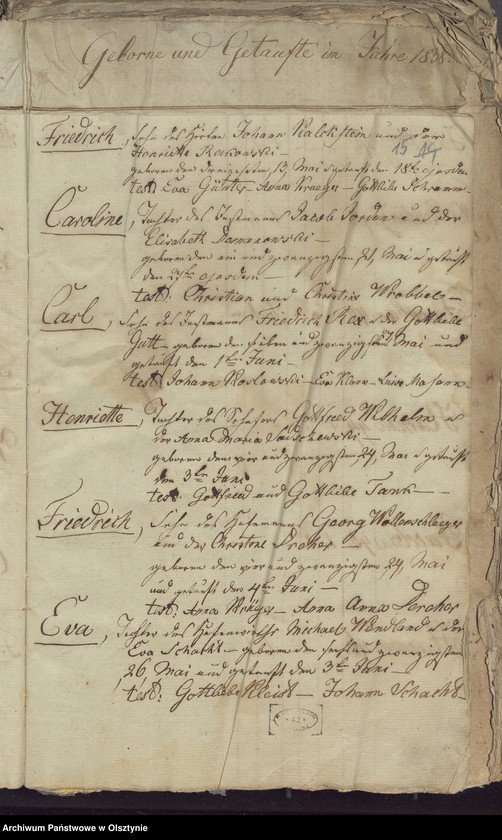 Geborne und Getaufte im Jahre 1838.
15 14
Friedrich, Sohn des Hirten Johann Kalckstein und der
Henriette
geboren den dreizehnten, 13, Mai getauft den 18ten ejusdem
test: Eva Günter – Anna Krueger – Gottliebe Schramm
Caroline, Tochter des Instmanns Jacob Jordan und der
Elisabeth
geboren den ein und zwanzigsten 21, Mai u getauft
den ejusdem –
test: Christian und Christine Wrobbel –
Carl, Sohn des Instmanns Friedrich Rex u der Gottliebe
Gutt – geboren den sieben und zwanzigsten Mai und
getauft den 1ten Juni –
test: Johann Koslowski – Eva Klann – Luise
Henriette, Tochter des Schäfers Gottfried Wilhelm u
der Anna Maria
geboren den vier und zwanzigsten 24, Mai u getauft
den 3ten Juni
test: Gottfried und Gottliebe Tank –
Friedrich, Sohn des Georg Wollenschlaeger
und der Christine
geboren den vier und zwanzigsten 24, Mai
und getauft den 4ten Juni –
test: Anna Krüger – Anna
Eva, Tochter des Michael Wendland u der
Eva Schacht – geboren den sechs und zwanzigsten
26 Mai und getauft den 3ten Juni –
test: Gottliebe Kleist – Johann Schacht –
Archiwum Państwowe w Olsztynie